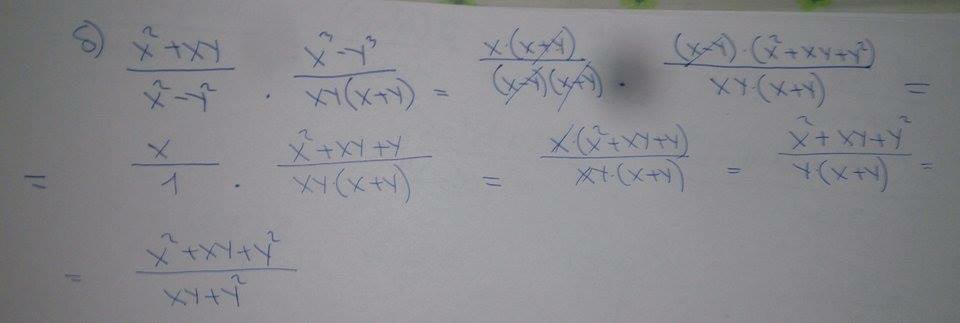 б) (x²+xy)/(x²-y²) · (x³-y³)/(xy(x+y)) = (x·(x+y))/((x-y)(x+y)) · ((x-y)·(x²+xy+y²))/(xy·(x+y)) =
= x/1 · (x²+xy+y)/(xy·(x+y)) = (x·(x²+xy+y))/(xy·(x+y)) = (x²+xy+y²)/(y·(x+y)) =
= (x²+xy+y²)/(xy+y²)